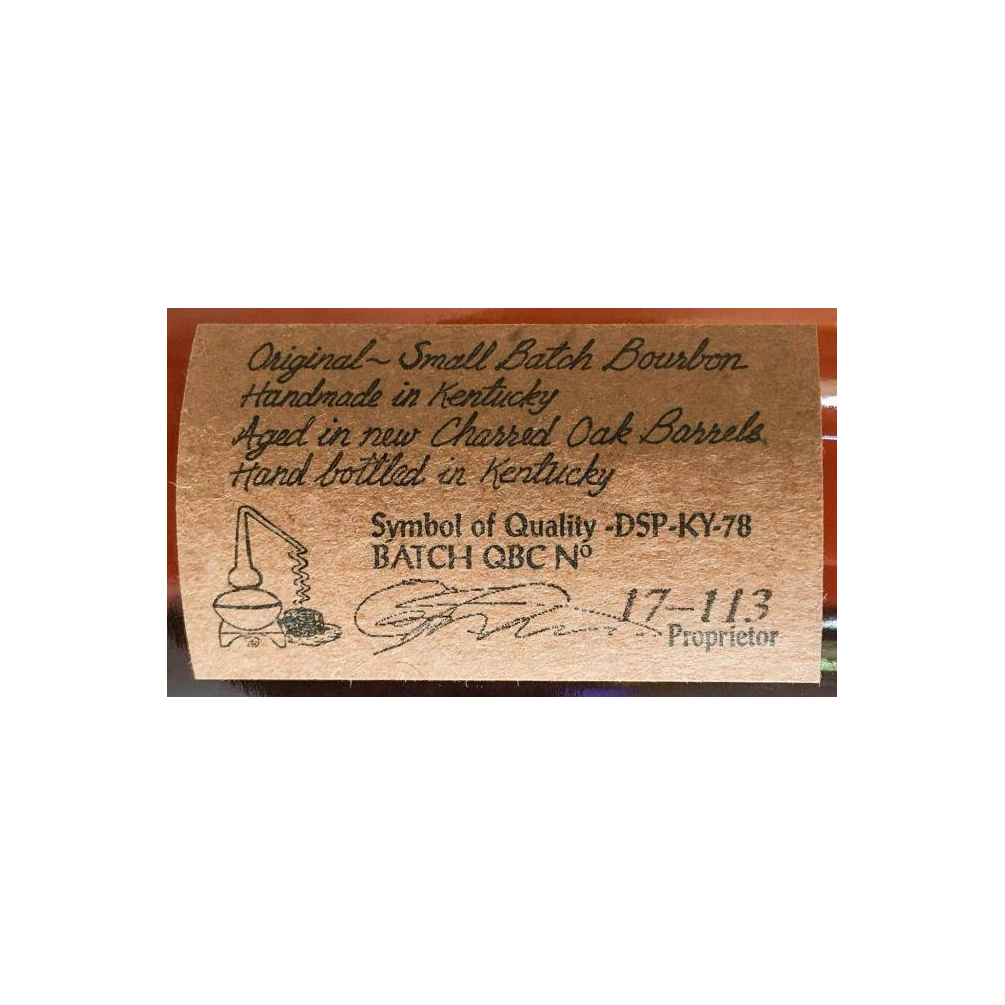 Original~ Small Batch Bourbon
Handmade in Kentucky
Aged in new Charred Oak Barrels
Hand bottled in Kentucky
Symbol of Quality -DSP-KY-78
BATCH QBC Nº
17-113
Proprietor
®